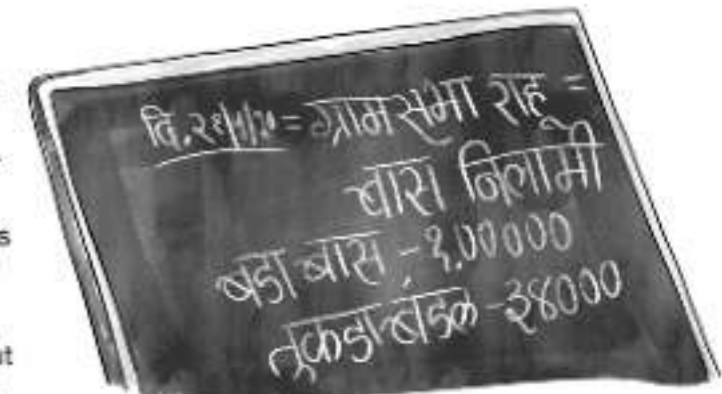 दि.२१|५|२० = ग्रामसभा राहू =
बास निलामी
बडा बास - १,०००००
तूकडा बंडल - ३४०००
s